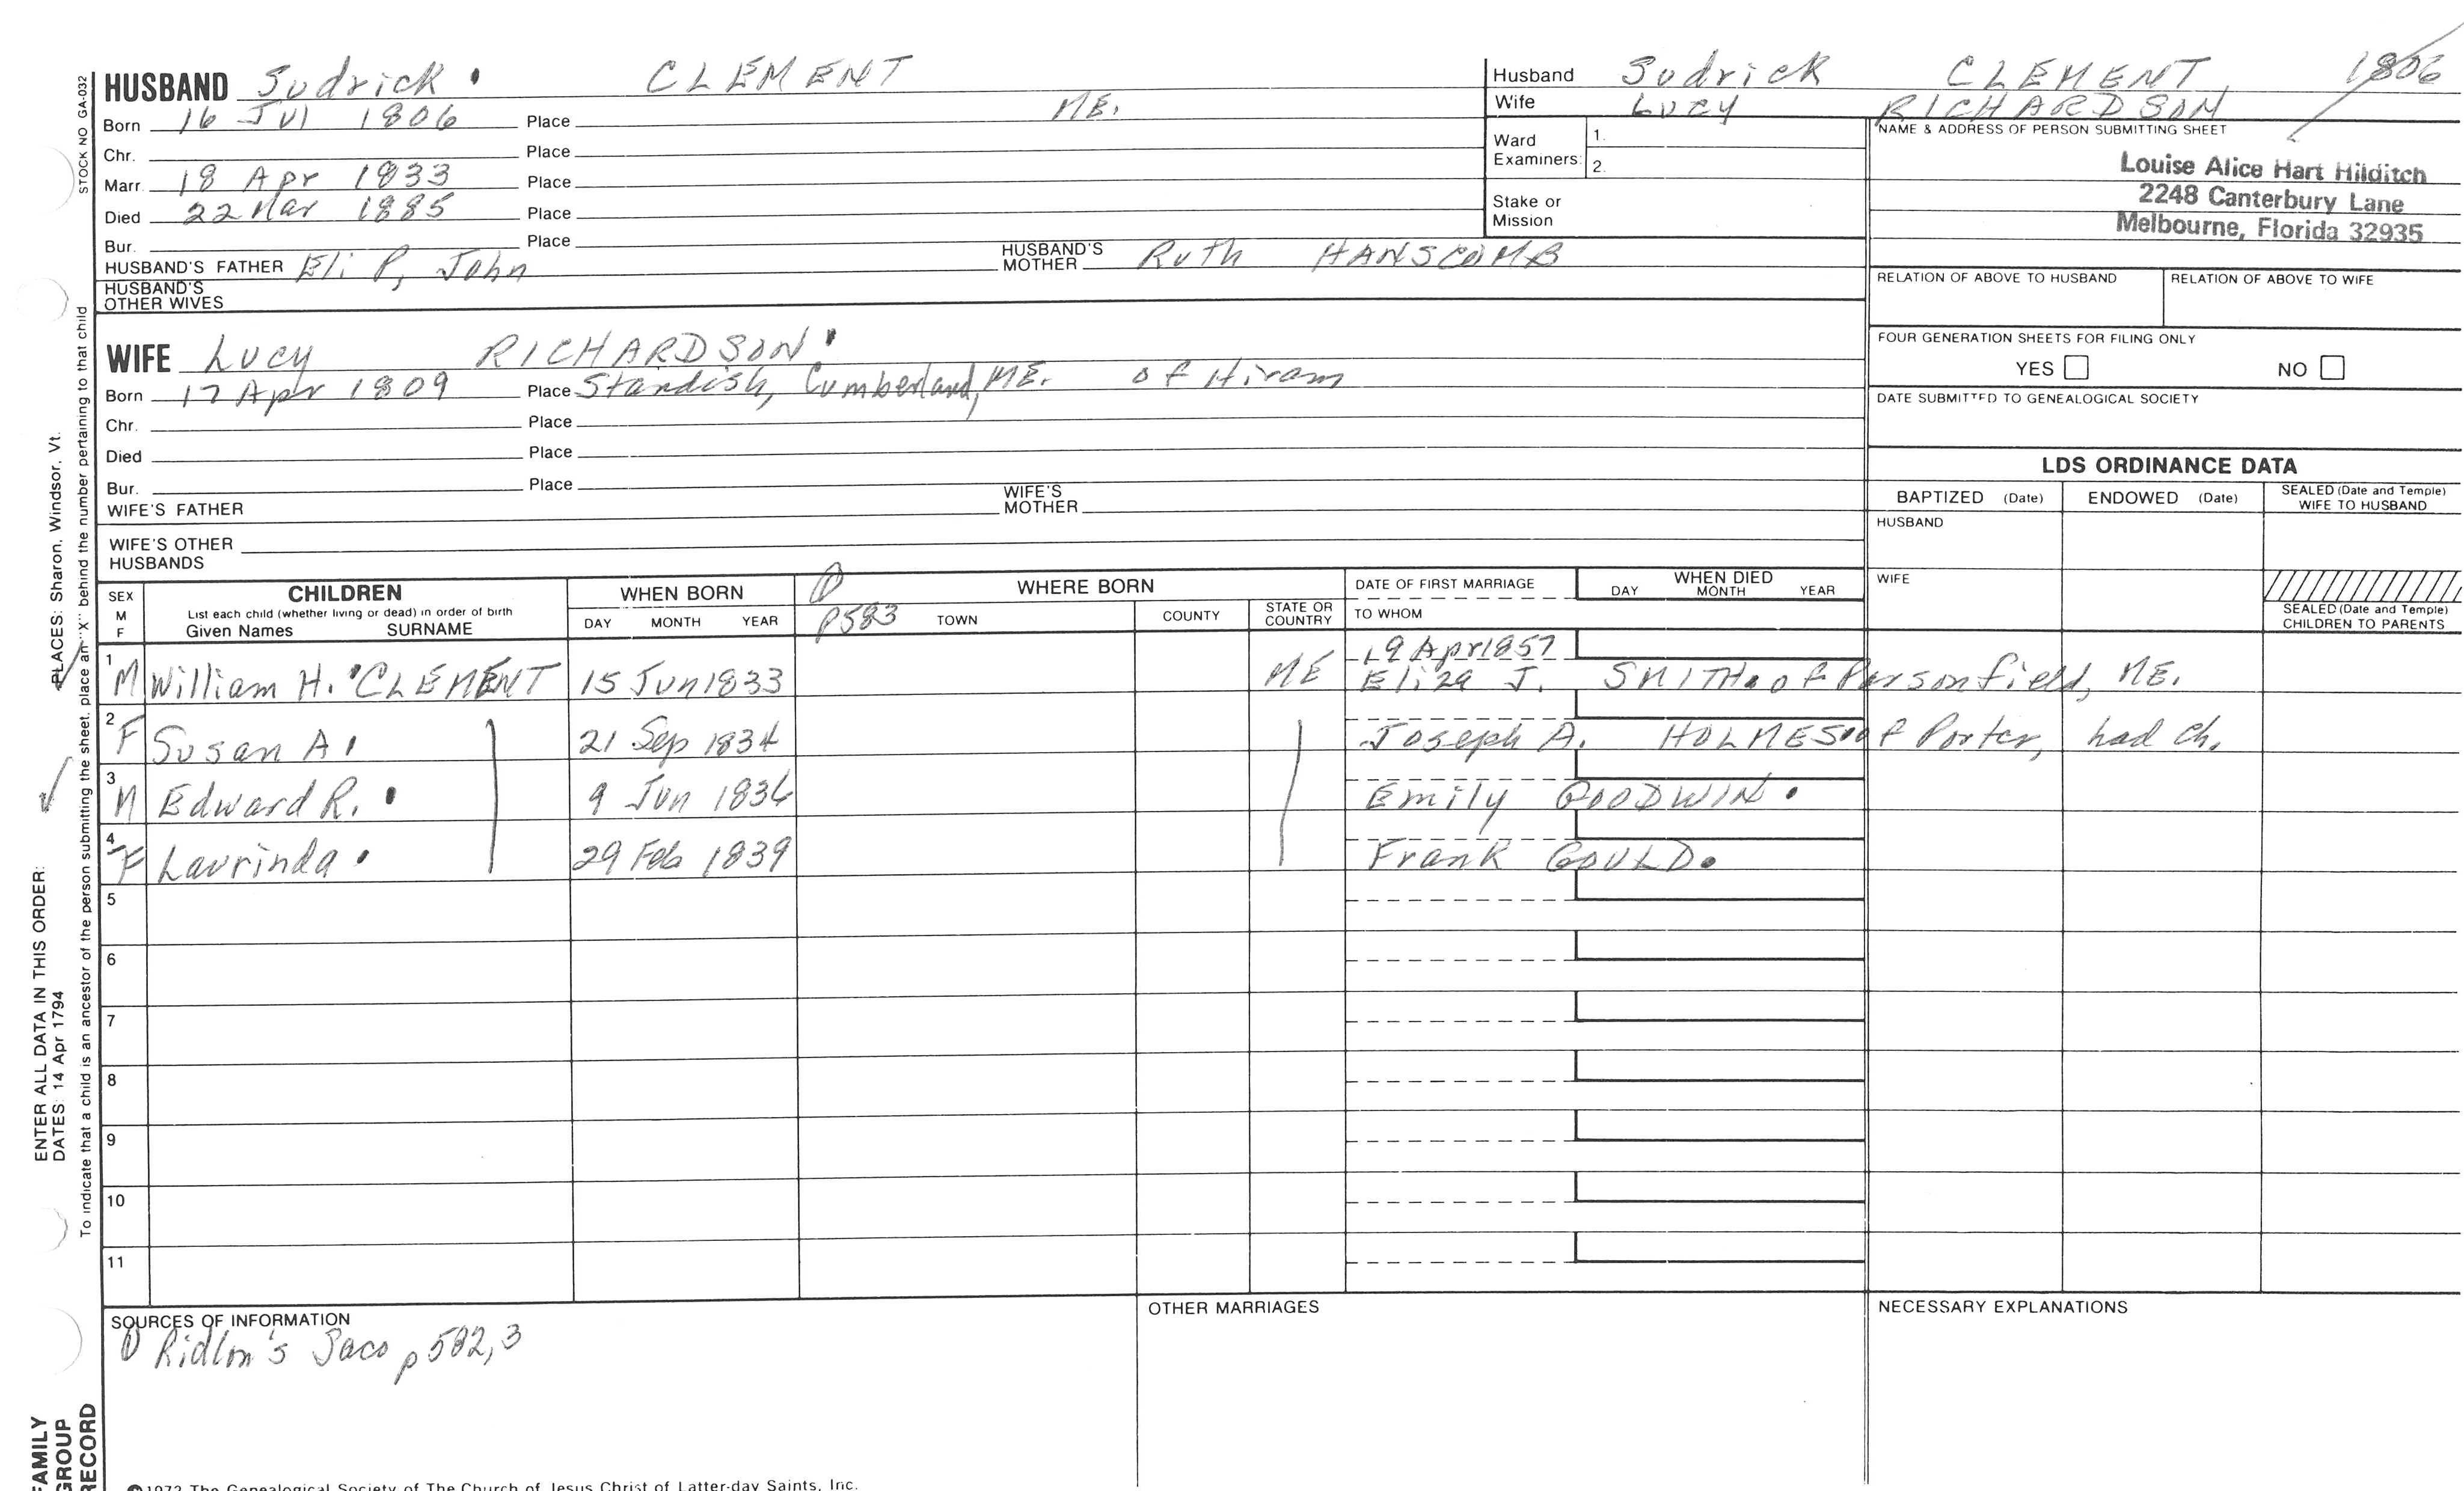 HUSBAND Sudrick . CLEMENT
Born 16 Jul 1806 Place ME.
Chr. Place
Marr. 18 Apr 1833 Place
Died 22 Mar 1885 Place
Bur. Place
HUSBAND'S FATHER Eli P, John HUSBAND'S MOTHER Ruth HANSCOMB
HUSBAND'S OTHER WIVES
Husband Sudrick CLEMENT, 1806
Wife Lucy RICHARDSON
Ward Examiners: 1. 2.
Stake or Mission
NAME & ADDRESS OF PERSON SUBMITTING SHEET
Louise Alice Hart Hilditch
2248 Canterbury Lane
Melbourne, Florida 32935
RELATION OF ABOVE TO HUSBAND RELATION OF ABOVE TO WIFE
FOUR GENERATION SHEETS FOR FILING ONLY
YES NO
DATE SUBMITTED TO GENEALOGICAL SOCIETY
WIFE Lucy RICHARDSON.
Born 17 Apr 1809 Place Standish, Cumberland, ME. of Hiram
Chr. Place
Died Place
Bur. Place
WIFE'S FATHER WIFE'S MOTHER
WIFE'S OTHER HUSBANDS
LDS ORDINANCE DATA
BAPTIZED (Date) ENDOWED (Date) SEALED (Date and Temple) WIFE TO HUSBAND
HUSBAND
WIFE
SEALED (Date and Temple) CHILDREN TO PARENTS
SEX M F
CHILDREN
List each child (whether living or dead) in order of birth
Given Names SURNAME
WHEN BORN
DAY MONTH YEAR
① p583
WHERE BORN
TOWN COUNTY STATE OR COUNTRY
DATE OF FIRST MARRIAGE
TO WHOM
WHEN DIED
DAY MONTH YEAR
19 Apr 1857
1 M William H. CLEMENT 15 Jun 1833 ME Eliza J. SMITH. of Parsonfield, ME.
2 F Susan A. 21 Sep 1834 Joseph A. HOLMES. of Porter, had ch.
3 M Edward R. . 9 Jun 1836 Emily GOODWIN .
4 F Laurinda . 29 Feb 1839 Frank GOULD.
5
6
7
8
9
10
11
SOURCES OF INFORMATION
① Ridlon's Saco p 582,3
OTHER MARRIAGES
NECESSARY EXPLANATIONS
©1972 The Genealogical Society of The Church of Jesus Christ of Latter-day Saints, Inc.
STOCK NO GA-032
To indicate that a child is an ancestor of the person submitting the sheet, place an "X" behind the number pertaining to that child
ENTER ALL DATA IN THIS ORDER:
DATES: 14 Apr 1794 PLACES: Sharon, Windsor, Vt.
FAMILY
GROUP
RECORD